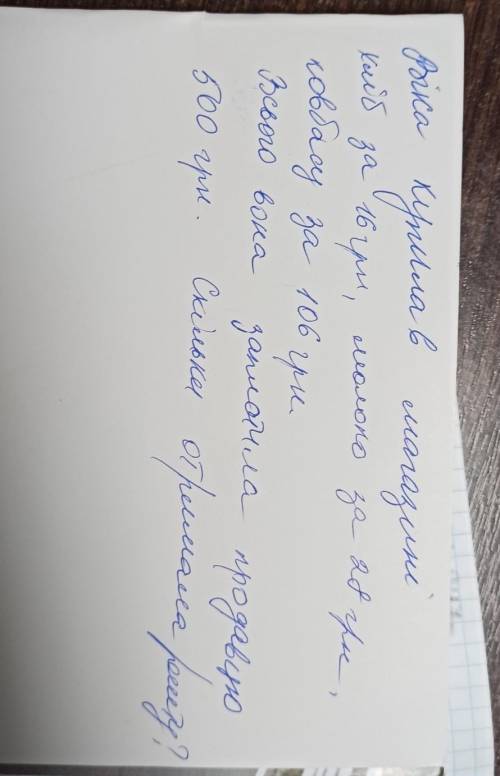 Віка купила в магазині
хліб за 16 грн, молоко за 28 грн,
ковбасу за 106 грн.
Всього вона заплатила продавцю
500 грн. Скільки отримала решту?